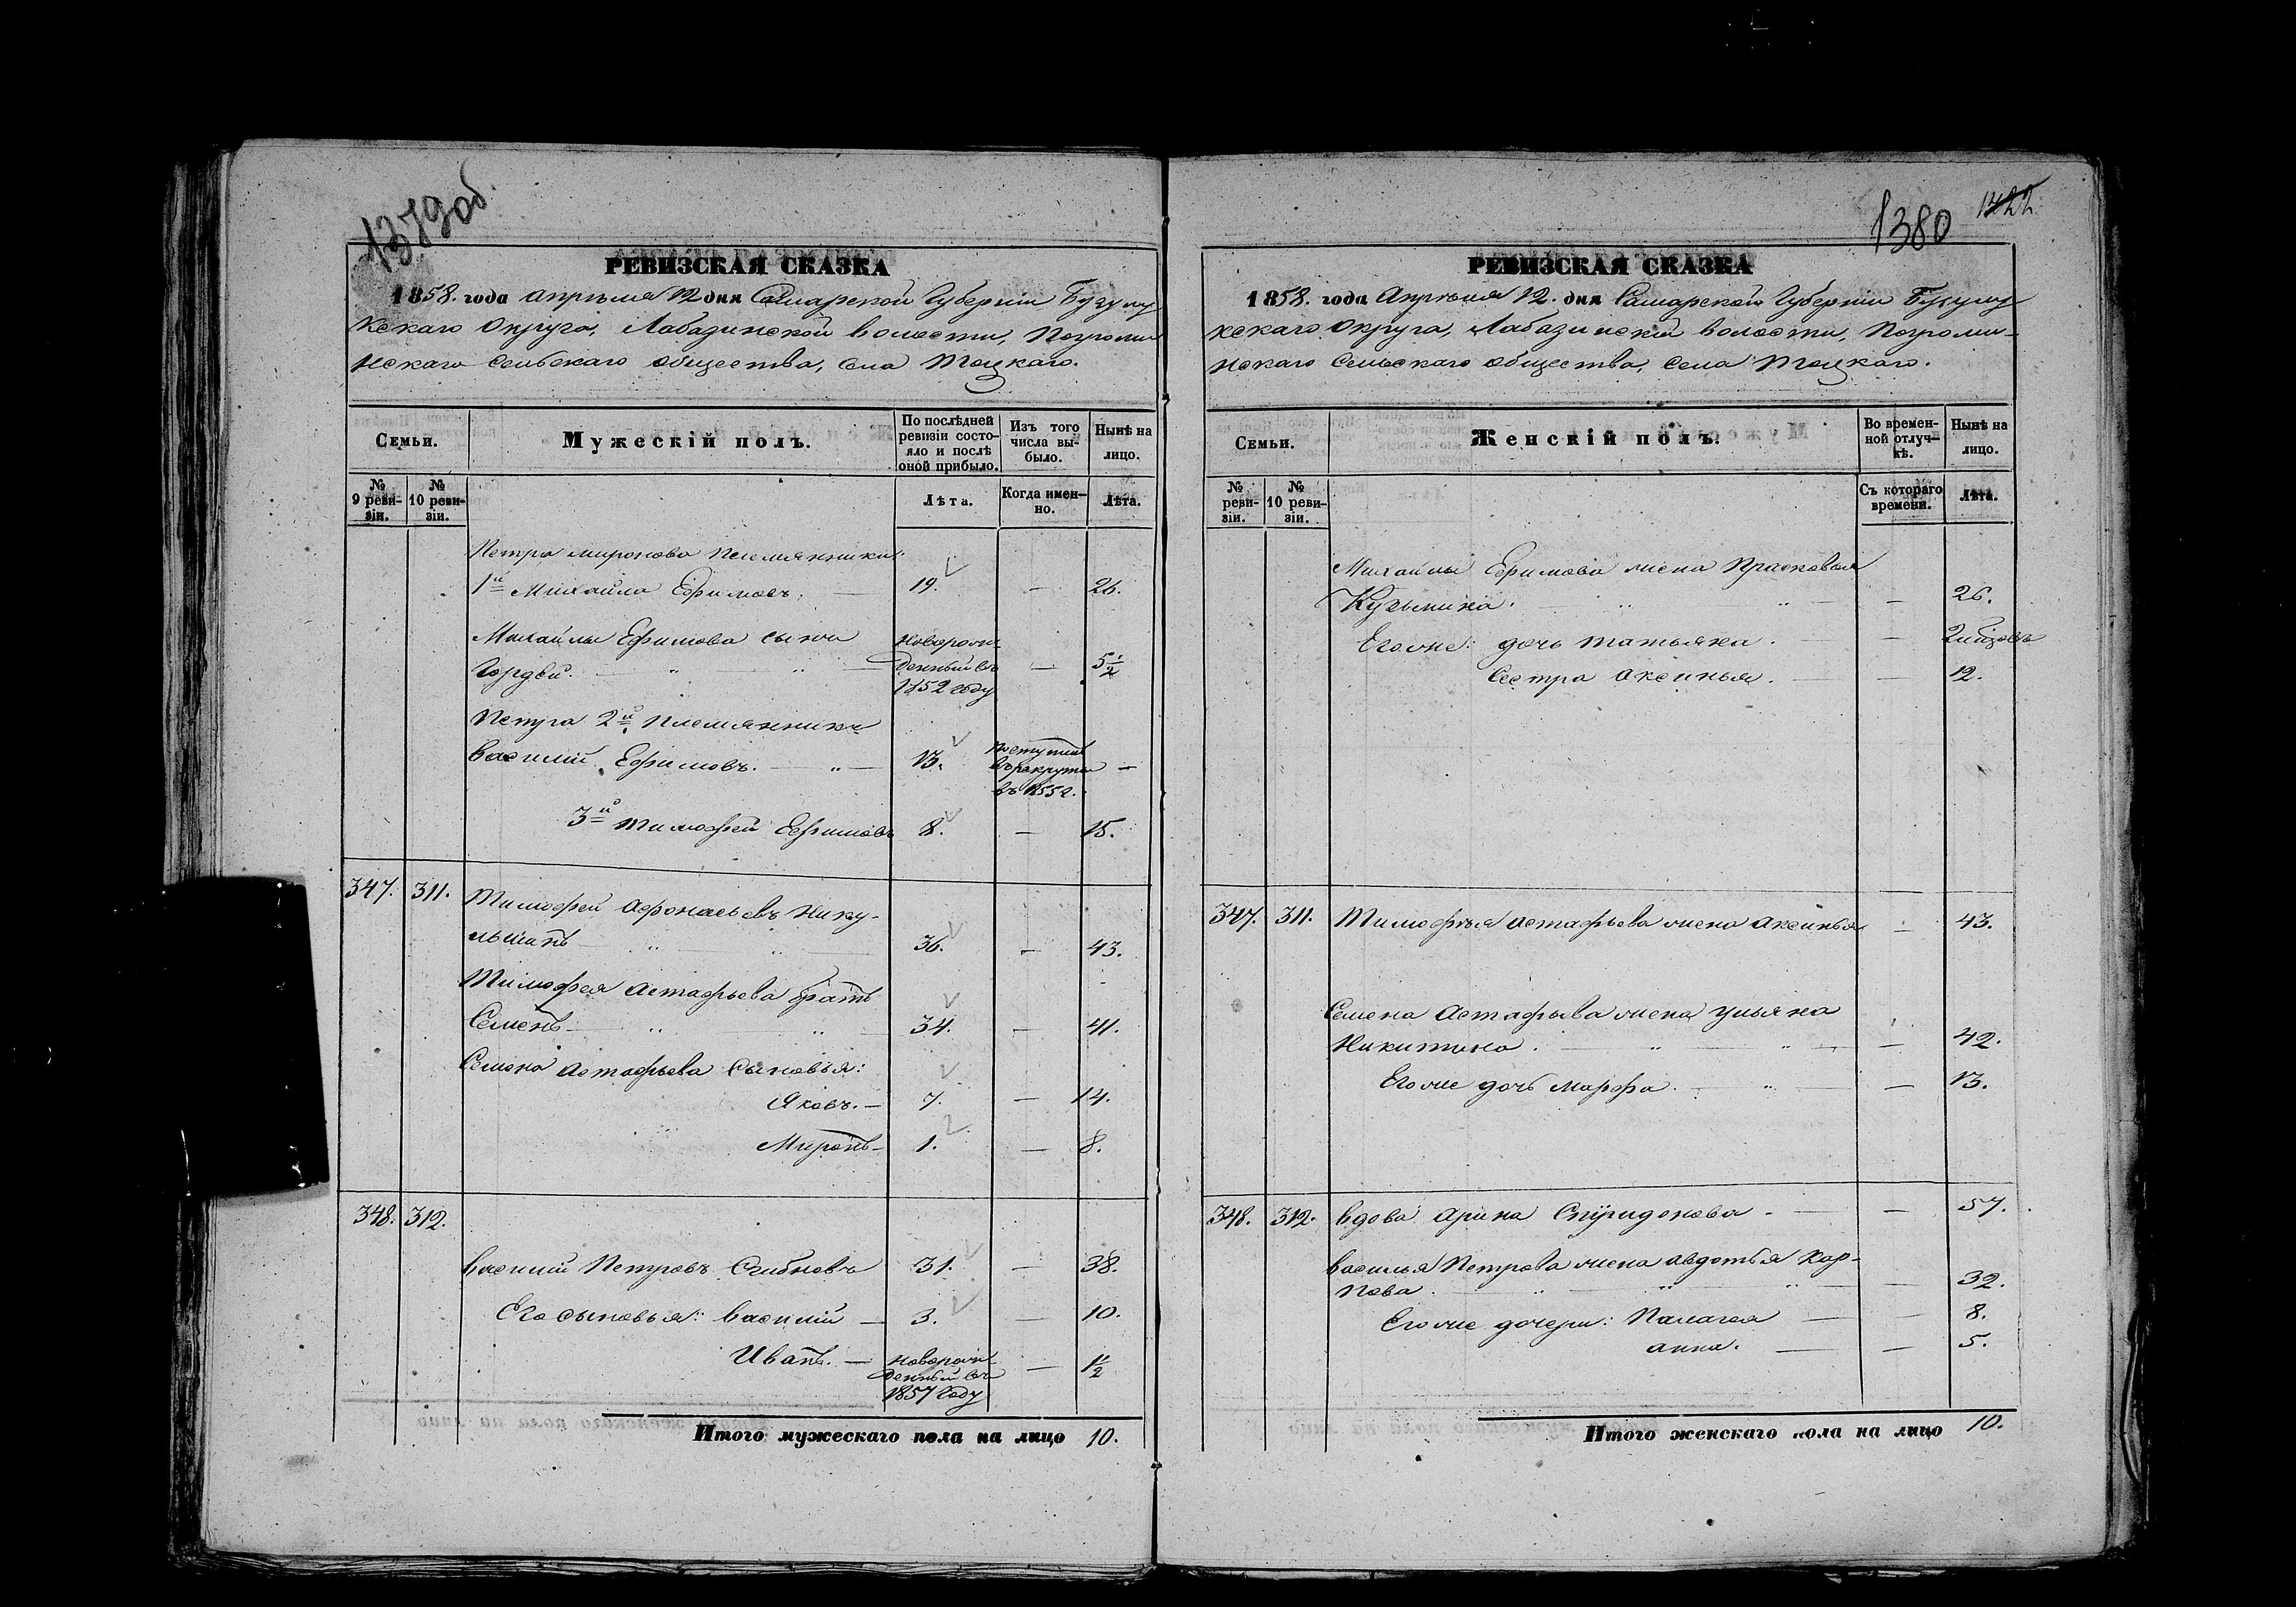 1379об.
РЕВИЗСКАЯ СКАЗКА
1858. года Апрѣля 12 дня Самарской Губерніи Бузулу
кскаго Округа, Лабазинской волости, Погроми
нскаго Сельскаго общества, села Тоцкаго.
Семьи.
Мужескій полъ.
По послѣдней ревизіи состояло и послѣ оной прибыло.
Изъ того числа выбыло.
Нынѣ на лицо.
№ 9 ревизіи.
№ 10 ревизіи.
Лѣта.
Когда именно.
Лѣта.
Петра миронова племянники:
1й Михайла Ефимовъ. — 19. — 26.
Михайлы Ефимова сынъ
Гордѣй. — новорожденный въ 1852 году — 5½
Петра 2й племянникъ
василій Ефимовъ. — 13. поступилъ въ рекруты въ 1855 г. —
3й тимофей Ефимовъ 8. — 15.
347. 311. Тимофей Афонасьевъ Нику-
льшинъ — 36. — 43.
Тимофея Астафьева братъ
Семенъ — 34. — 41.
Семена Астафьева сыновья:
Яковъ. — 7. — 14.
Миронъ — 1. — 8.
348. 312.
василій Петровъ 31. — 38.
Его сыновья: василій — 3. — 10.
Иванъ. — новорожденный въ 1857 году — ½
Итого мужескаго пола на лицо 10.
1380 1422
РЕВИЗСКАЯ СКАЗКА
1858. года Апрѣля 12. дня Самарской Губерніи Бузулу
кскаго Округа, Лабазинской волости, Погроми-
нскаго Сельскаго общества, села Тоцкаго.
Семьи.
Женскій полъ.
Во временной отлучкѣ.
Нынѣ на лицо.
№ ревизіи.
№ 10 ревизіи.
Съ котораго времени.
Лѣта.
Михайлы Ефимова жена Прасковья
Кузьмина. — 26.
Его же: дочь татьяна. —
Сестра Аксинья. — 12.
347. 311. Тимофѣя Астафьева жена Аксинья — 43.
Семена Астафьева жена Ульяна
Никитина. — 42.
Его же дочь марфа. — 13.
348. 312. вдова Арина Спиридонова — 57.
василья Петрова жена Авдотья Кар-
пова. — 32.
Его же дочери: Палагея — 8.
анна. — 5.
Итого женскаго пола на лицо 10.